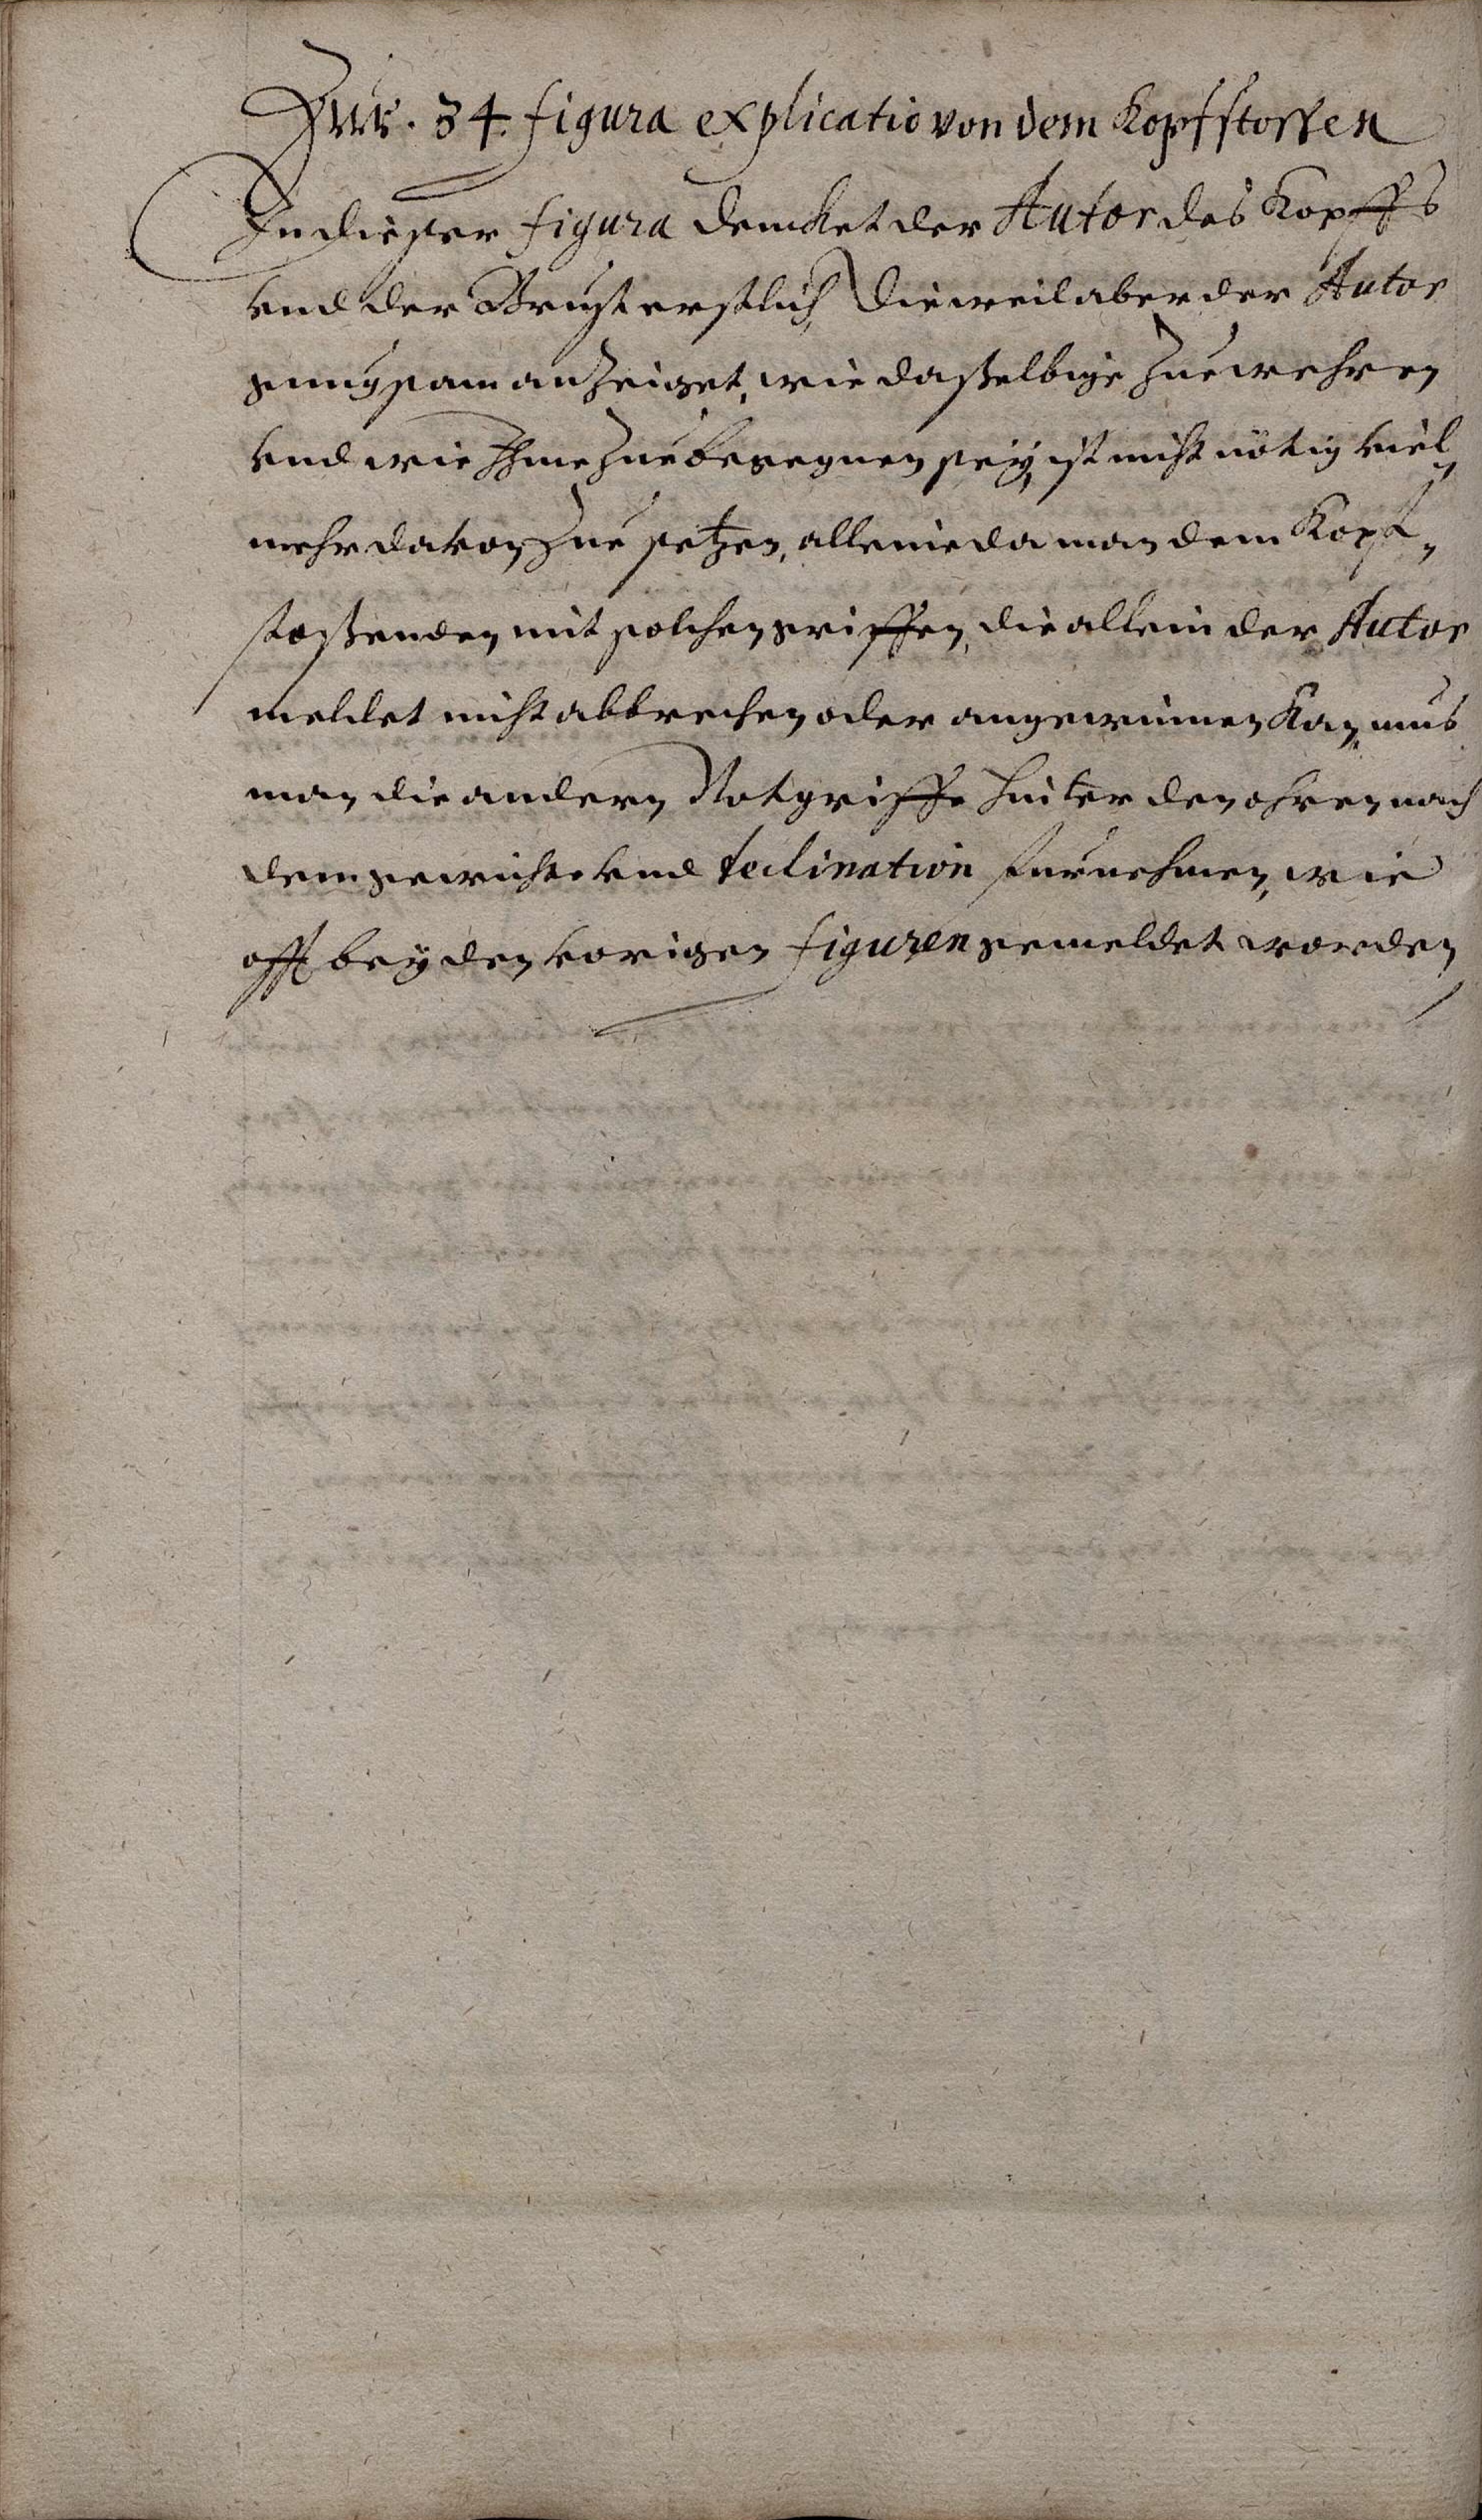 Zur. 34. figura explicatio von dem Kopfstossen
In dieser figura dencket der Autor des Kopffs
vnd der Brust erstlich, dieweil aber der Autor
genugsam anzeiget, wie daßelbige zue wehren
vnd wie Ihme zue begegnen sey, ist nicht nötig viel
mehr davon zue setzen, alleine da man dem Kopf„
stoßenden mit solchen griffen, die allein der Autor
meldet nicht abbrechen oder angewinnen kan, mus
man die andern Notgriffe hinter den ohren nach
dem gewichte vnd declination furnehmen, wie
offt bey den vorigen figuren gemeldet worden